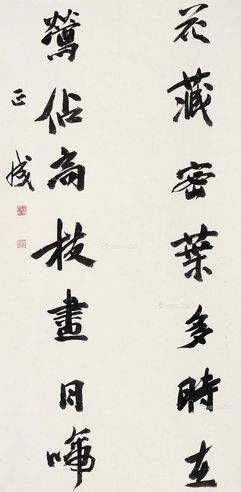 花藏密葉多時在
鶯佔高枝晝日啼
正成